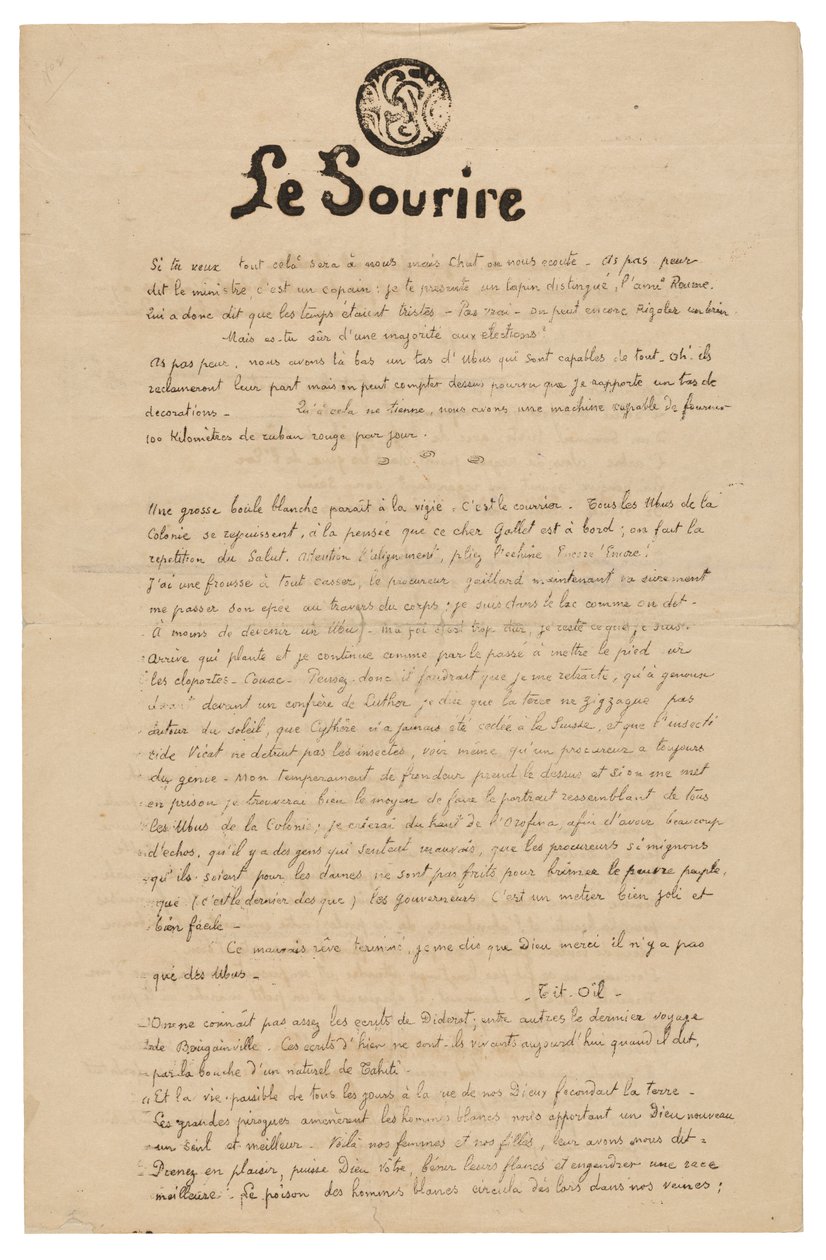 Le Sourire
Si tu veux tout cela sera à nous mais Chut on nous ecoute - As pas peur
dit le ministre c'est un copain; je te presente un lapin distingué, l'ami Roume.
Qui a donc dit que les temps étaient tristes - Pas vrai - on peut encore Rigoler un brin
Mais es-tu sûr d'une majorité aux elections?
As pas peur, nous avons là bas un tas d'Ubus qui sont capables de tout - Oh! ils
reclameront leur part mais on peut compter dessus pourvu que je rapporte un tas de
decorations - Qu'à cela ne tienne, nous avons une machine capable de fournir
100 Kilomètres de ruban rouge par jour.
Une grosse boule blanche paraît à la vigie - C'est le courrier - Tous les Ubus de la
Colonie se rejouissent, à la pensée que ce cher Gallet est à bord; on fait la
repetition du Salut. Attention l'alignement, pliez l'echine Encore Encore!
J'ai une frousse à tout casser, le procureur gaillard maintenant va surement
me passer son epée au travers du corps; je suis dans le lac comme on dit -
À moins de devenir un Ubu - ma foi c'est trop dur, je reste ce que je suis.
Arrive qui plante et je continue comme par le passé à mettre le pied sur
les cloportes - Couac - Pensez donc il faudrait que je me retracte, qu'à genoux
devant un confrère de Luther je dise que la terre ne zigzague pas
autour du soleil, que Cythère n'a jamais été cedée à la Suisse, et que l'insecti
cide Vicat ne detruit pas les insectes, voir même qu'un procureur a toujours
du genie - Mon temperament de frondeur prend le dessus et si on me met
en prison je trouverai bien le moyen de faire le portrait ressemblant de tous
les Ubus de la Colonie; je crierai du haut de l'Orofina, afin d'avoir beaucoup
d'echos, qu'il y a des gens qui sentent mauvais, que les procureurs si mignons
qu'ils soient pour les dames ne sont pas faits pour brimer le pauvre peuple,
que (c'est le dernier des que) les gouverneurs C'est un metier bien joli et
bien facile -
Ce mauvais rêve terminé, je me dis que Dieu merci il n'y a pas
que des Ubus -
- Tit-Oïl -
On ne connaît pas assez les ecrits de Diderot; entre autres le dernier voyage
de Bougainville. Ces ecrits d'hier ne sont-ils vivants aujourd'hui quand il dit,
par la bouche d'un naturel de Tahiti -
" Et la vie paisible de tous les jours à la vue de nos Dieux fecondait la terre -
Les grandes pirogues amenèrent les hommes blancs nous apportant un Dieu nouveau
un seul et meilleur - Voilà nos femmes et nos filles, leur avons nous dit -
Prenez en plaisir, puisse Dieu vôtre, benir leurs flancs et engendrer une race
meilleure - Le poison des hommes blancs circula dès lors dans nos veines;